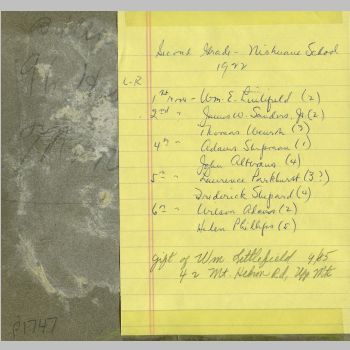 Second Grade - Nishuane School
1922
L-R
1st row - Wm. E. Littlefield (2)
2nd " James W. Sanders, Jr. (2)
Thomas (3)
4th " Adams Shipman (1)
John (4)
5th " Lawrence Parkhurst (3?)
Broderick Shepard (4)
6th " Wilson Adams (2)
Helen Phillips (5)
gift of Wm Littlefield 9/85
42 Mt. Hebron Rd, Upp Mtc
P1747